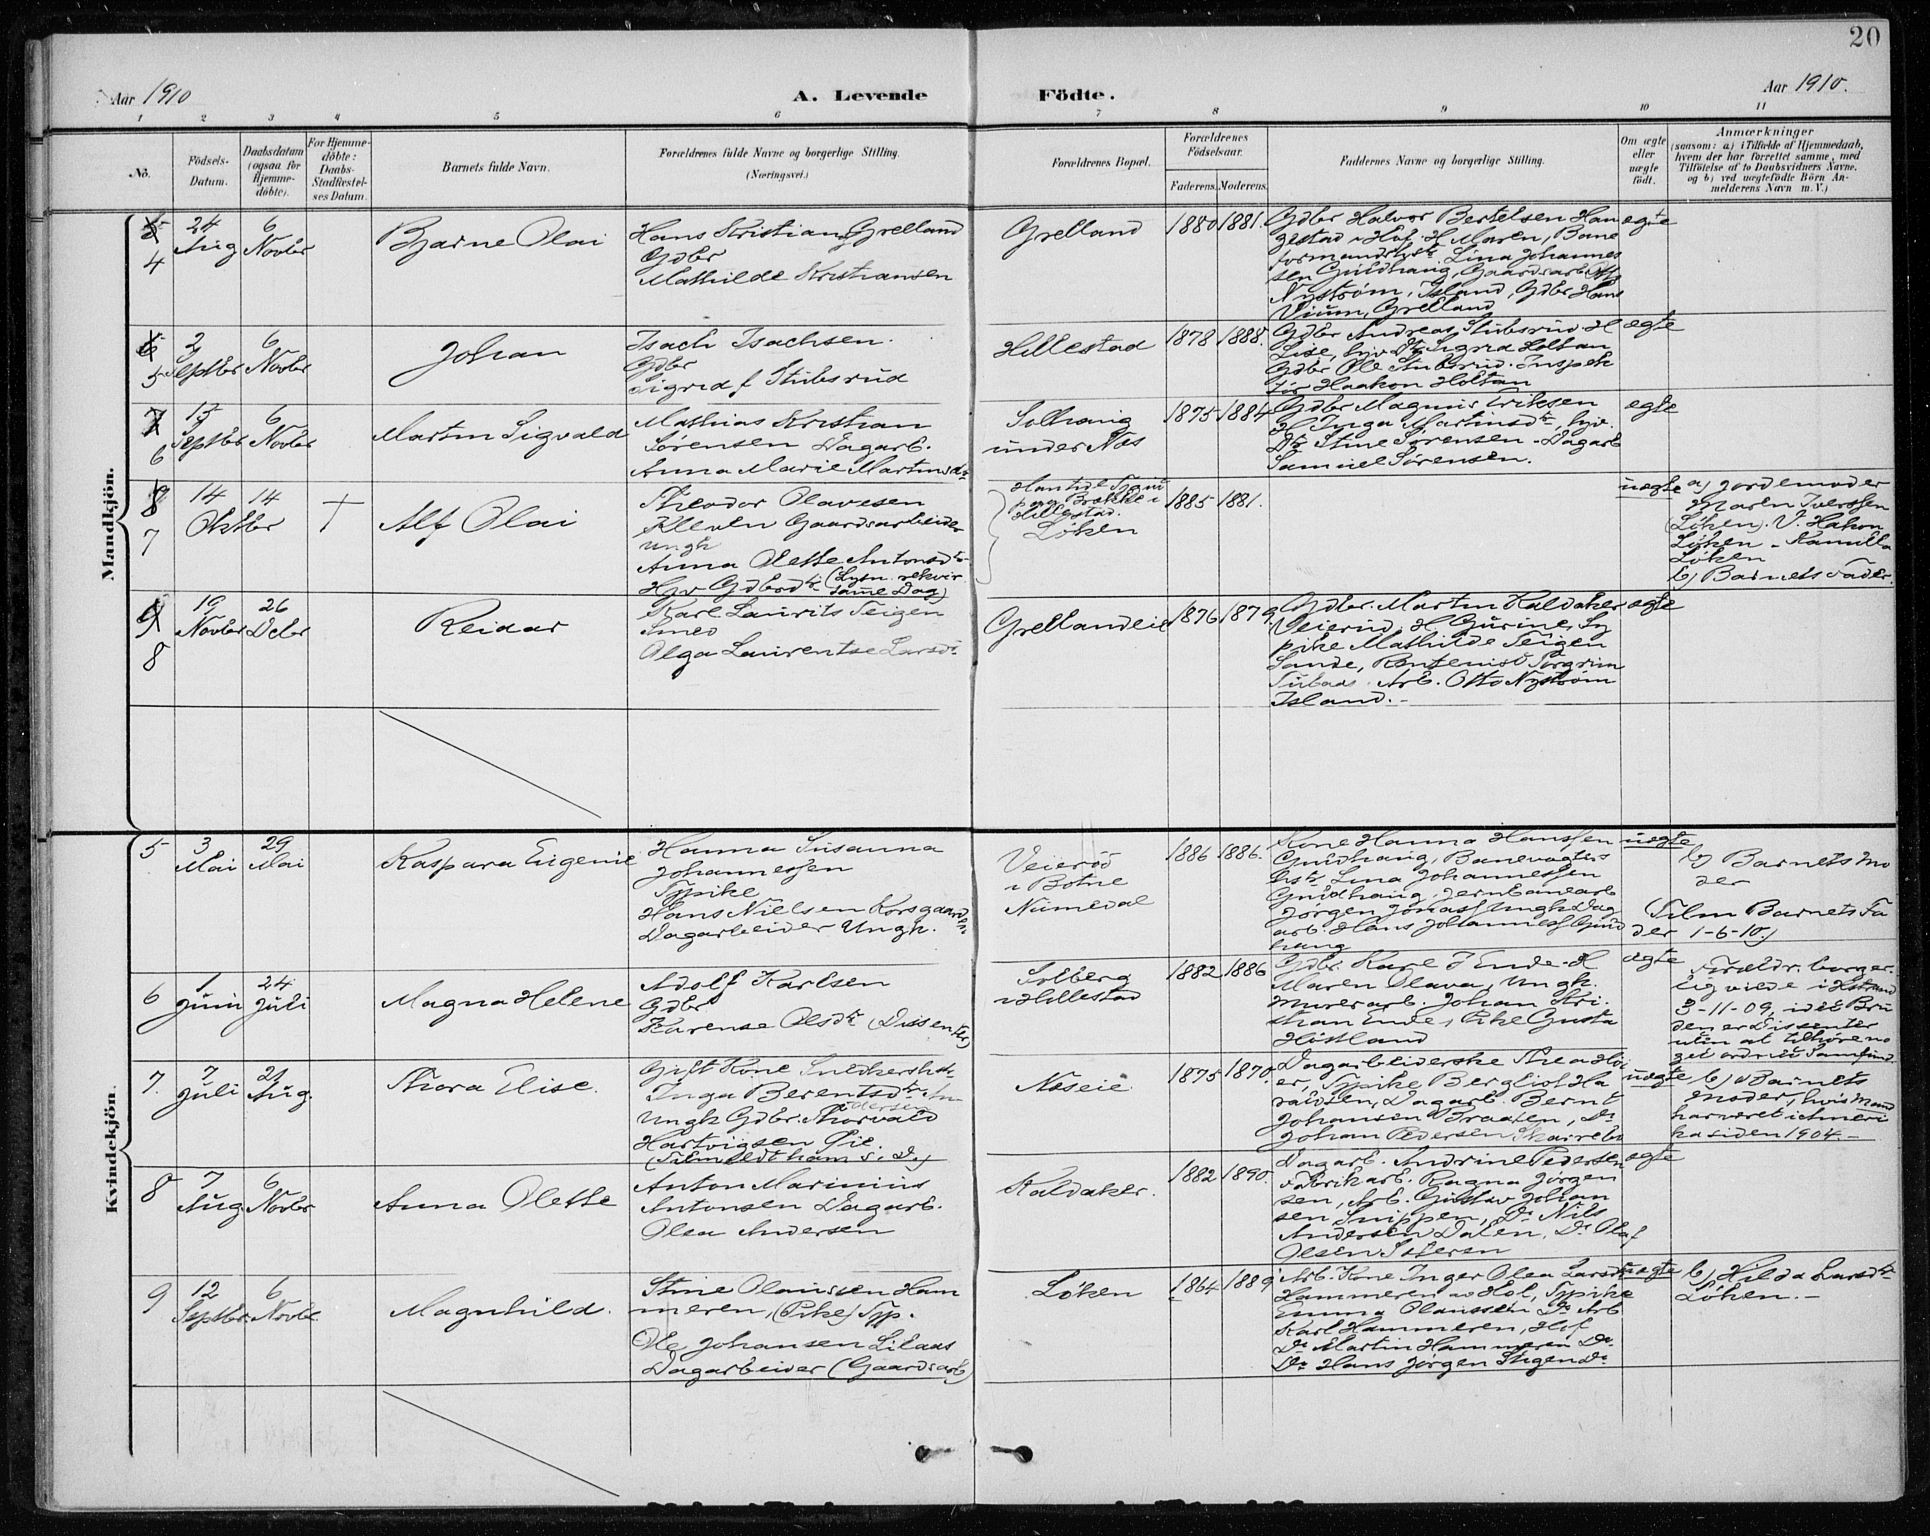 20
Aar 1910
A. Levende
Födte.
Aar 1910.
1 2 3 4 5 6 7 8 9 10 11
No.
Födsels-
Datum.
Daabsdatum
(ogsaa for
Hjemme-
döbte).
For Hjemme-
döbte:
Daabs-
Stadfæstel-
ses Datum.
Barnets fulde Navn.
Forældrenes fulde Navne og borgerlige Stilling.
(Næringsvei.)
Forældrenes Bopæl.
Forældrenes
Födselsaar.
Faderens.
Moderens.
Faddernes Navne og borgerlige Stilling.
Om ægte
eller
uægte
födt.
Anmærkninger
(saasom: a) i Tilfælde af Hjemmedaab,
hvem der har forrettet samme, med
Tilföielse af to Daabsvidners Navne.
og b) ved uægtefödte Börn An-
melderens Navn m. V.)
Mandkjön.
4
24
Aug
6
Novbr
Bjarne Olai
Hans Kristian Grelland
Gdbr
Mathilde Kristiansen
Grelland
1880
1881.
Gdbr Halvor Bertelsen Han
gestad i Hof, H Maren, Bane
formandsk Lina Johannes
sen Guldhaug, Gaardsarb Otto
Nystrøm, Island, Gdbr Hans
Vium, Grelland
ægte
5
2
Septbr
6
Novbr
Johan
Isach Isachsen.
Gdbr
Sigrid f Stubsrud
Hillestad
1878
1888.
Gdbr Andreas Stubsrud H
Lise, hjv Dtr Sigrid Holtan
Gdbr Ole Stubsrud. Inspek
tør Haakon Holtan
ægte
6
13
Septbr
6
Novbr
Martin Sigvald
Mathias Kristian
Sørensen Dagarb.
Anna Marie Martinsdtr
Solhaug
under Næs
1875
1884
Gdbr Magnus Eriksen
H Inga Martinsdtr, hjv.
Dtr Stine Sørensen - Dagarb
Samuel Sørensen.
ægte
7
14
14
Oktbr
†
Alf Olai
Theodor Olavesen
Kleven Gaardsarbeider
Ungk
Anna Olette Antonsdtr
Hjv Gdbrdtr (Lysn. rekvir
same Dag)
Hillestad.
Løken
1885
1881.
uægte
a) Jordemoder
Maren Iverssen
(Løken). V. Hakon
Løken - Kamilla
Løken
b) Barnets Fader.
8
19
Novbr
26
Debr
Reidar
Karl Laurits Teigen
Smed
Olga Laurentse Larsdtr
Grellandeie
1876
1879.
Gdbr. Martin Kaldaker
Veierud, H Gurine, Ty
pike Mathilde Teigen
Sande, Kontorist Torgrim
Arb. Otto Nystrøm
Island.-
ægte
Kvindekjön.
5
3
Mai
29
Mai
Kaspara Eugenie
Hanna Susanna
Johannessen
Typike
Hans Nielsen Korsgaard
Dagarbeider Ungk.
Veierød
i Botne
Numedal
1886
1886.
Kone Hanna Hanssen
Guldhaug, Banevogters
Lina Johannessen
Guldhaug, Jernbanearb
Jørgen Jonass Ungk Dag
arb. Hans Johanness Guld
haug
uægte
b) Barnets Mo
der
Tilm Barnets Fa
der 1-6-10.)
6
1
Juni
24
Juli
Magna Helene
Adolf Karlsen
Gdbr
Karense Olsdtr (Dissenter)
Solberg
i Hillestad
1882
1886
Gdbr. Karl J Ende. H
Maren Olava, Ungk.
Murerarb. Johan Kri.
stian Ende, Pike Gusta
Hotland
ægte
Foreldr. borger.
lig viede i Hstrand
3-11-09, idet Bru
den er Dissenter
uten at tilhøre no
get ordnet Samfund.
7.
7
Juli
21
Aug.
Thora Elise.
Gift Kone Snedkersk.
Inga Berentsdtr An
dersen
Ungk Gdbr. Thorvald
Hartvigsen Gie.
(Tilmeldt ham s. D.)
Næseie
1875
1870.
Dagarbeiderske Thea Høi
er, Typike Bergliot Ha
raldsen, Dagarb. Bernt
Johansen Braaten, Do
Johan Pedersen Skarrebo
uægte
b) Barnets
Moder, hvis Mand
har været i Ameri
ka siden 1904.-
8
7
Aug
6
Novbr
Anna Olette
Anton Marinius
Antonsen Dagarb.
Olea Andersen
Kaldaker.
1882
1890.
Dagarb. Andrine Pedersen
Fabrikarb. Ragna Jørgen
sen, Arb. Gustav Johan
sen Snippen, Do Nils
Andersen Dalen, Do Olaf
Olsen
ægte
9
12
Septbr.
6
Novbr.
Magnhild.
Stine Olaussen Ham
meren, (Pike) Typ.
Ole Johansen Lilaas
Dagarbeider (Gaardsarb)
Løken
1864
1889
Arb. Kone Inger Olea Larsdtr
Hammeren av Hof, Typike
Emma Olaussen Do Arb
Karl Hammeren, Hof
Do Martin Hammeren Do
Do Hans Jørgen Stigen Do
uægte
b) Hilda Larsdtr
Løken.-